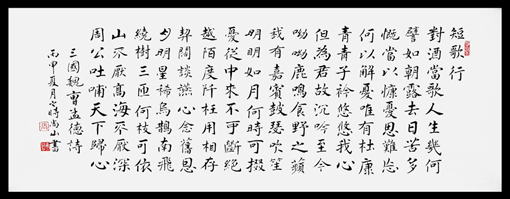 短歌行
對酒當歌人生幾何
譬如朝露去日苦多
慨當以慷憂思難忘
何以解憂唯有杜康
青青子衿悠悠我心
但為君故沉吟至今
呦呦鹿鳴食野之蘋
我有嘉賓鼓瑟吹笙
明明如月何時可掇
憂從中來不可斷絕
越陌度阡枉用相存
契闊談讌心念舊恩
月明星稀烏鵲南飛
繞樹三匝何枝可依
山不厭高海不厭深
周公吐哺天下歸心
三國魏曹孟德詩
丙申夏月時尚山書